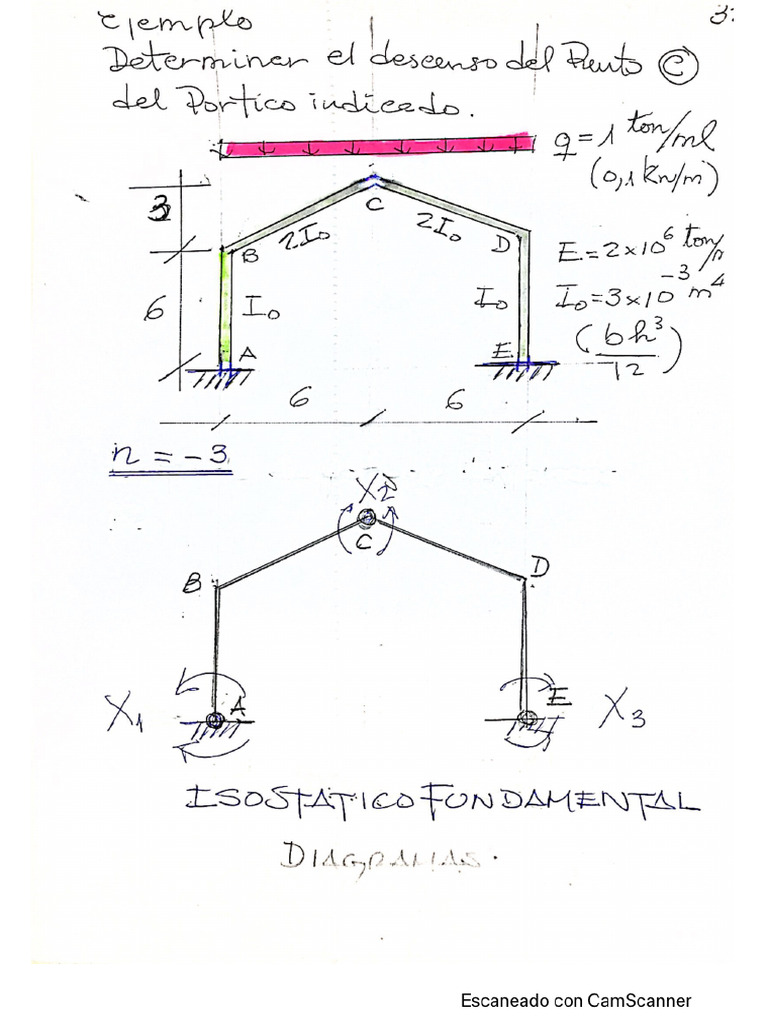 ejemplo
3.
Determinar el descenso del Punto C
del Portico indicado.
q=1 ton/ml
(0,1 kn/m)
3
C
2I₀
2I₀
B
D
E=2×10⁶ ton/
6
I₀
I₀
I₀=3×10⁻³ m⁴
A
E
(bh³/12)
6
6
n = -3
X2
C
B
D
X1
A
E
X3
ISOSTATICO FUNDAMENTAL
DIAGRAMAS.
Escaneado con CamScanner